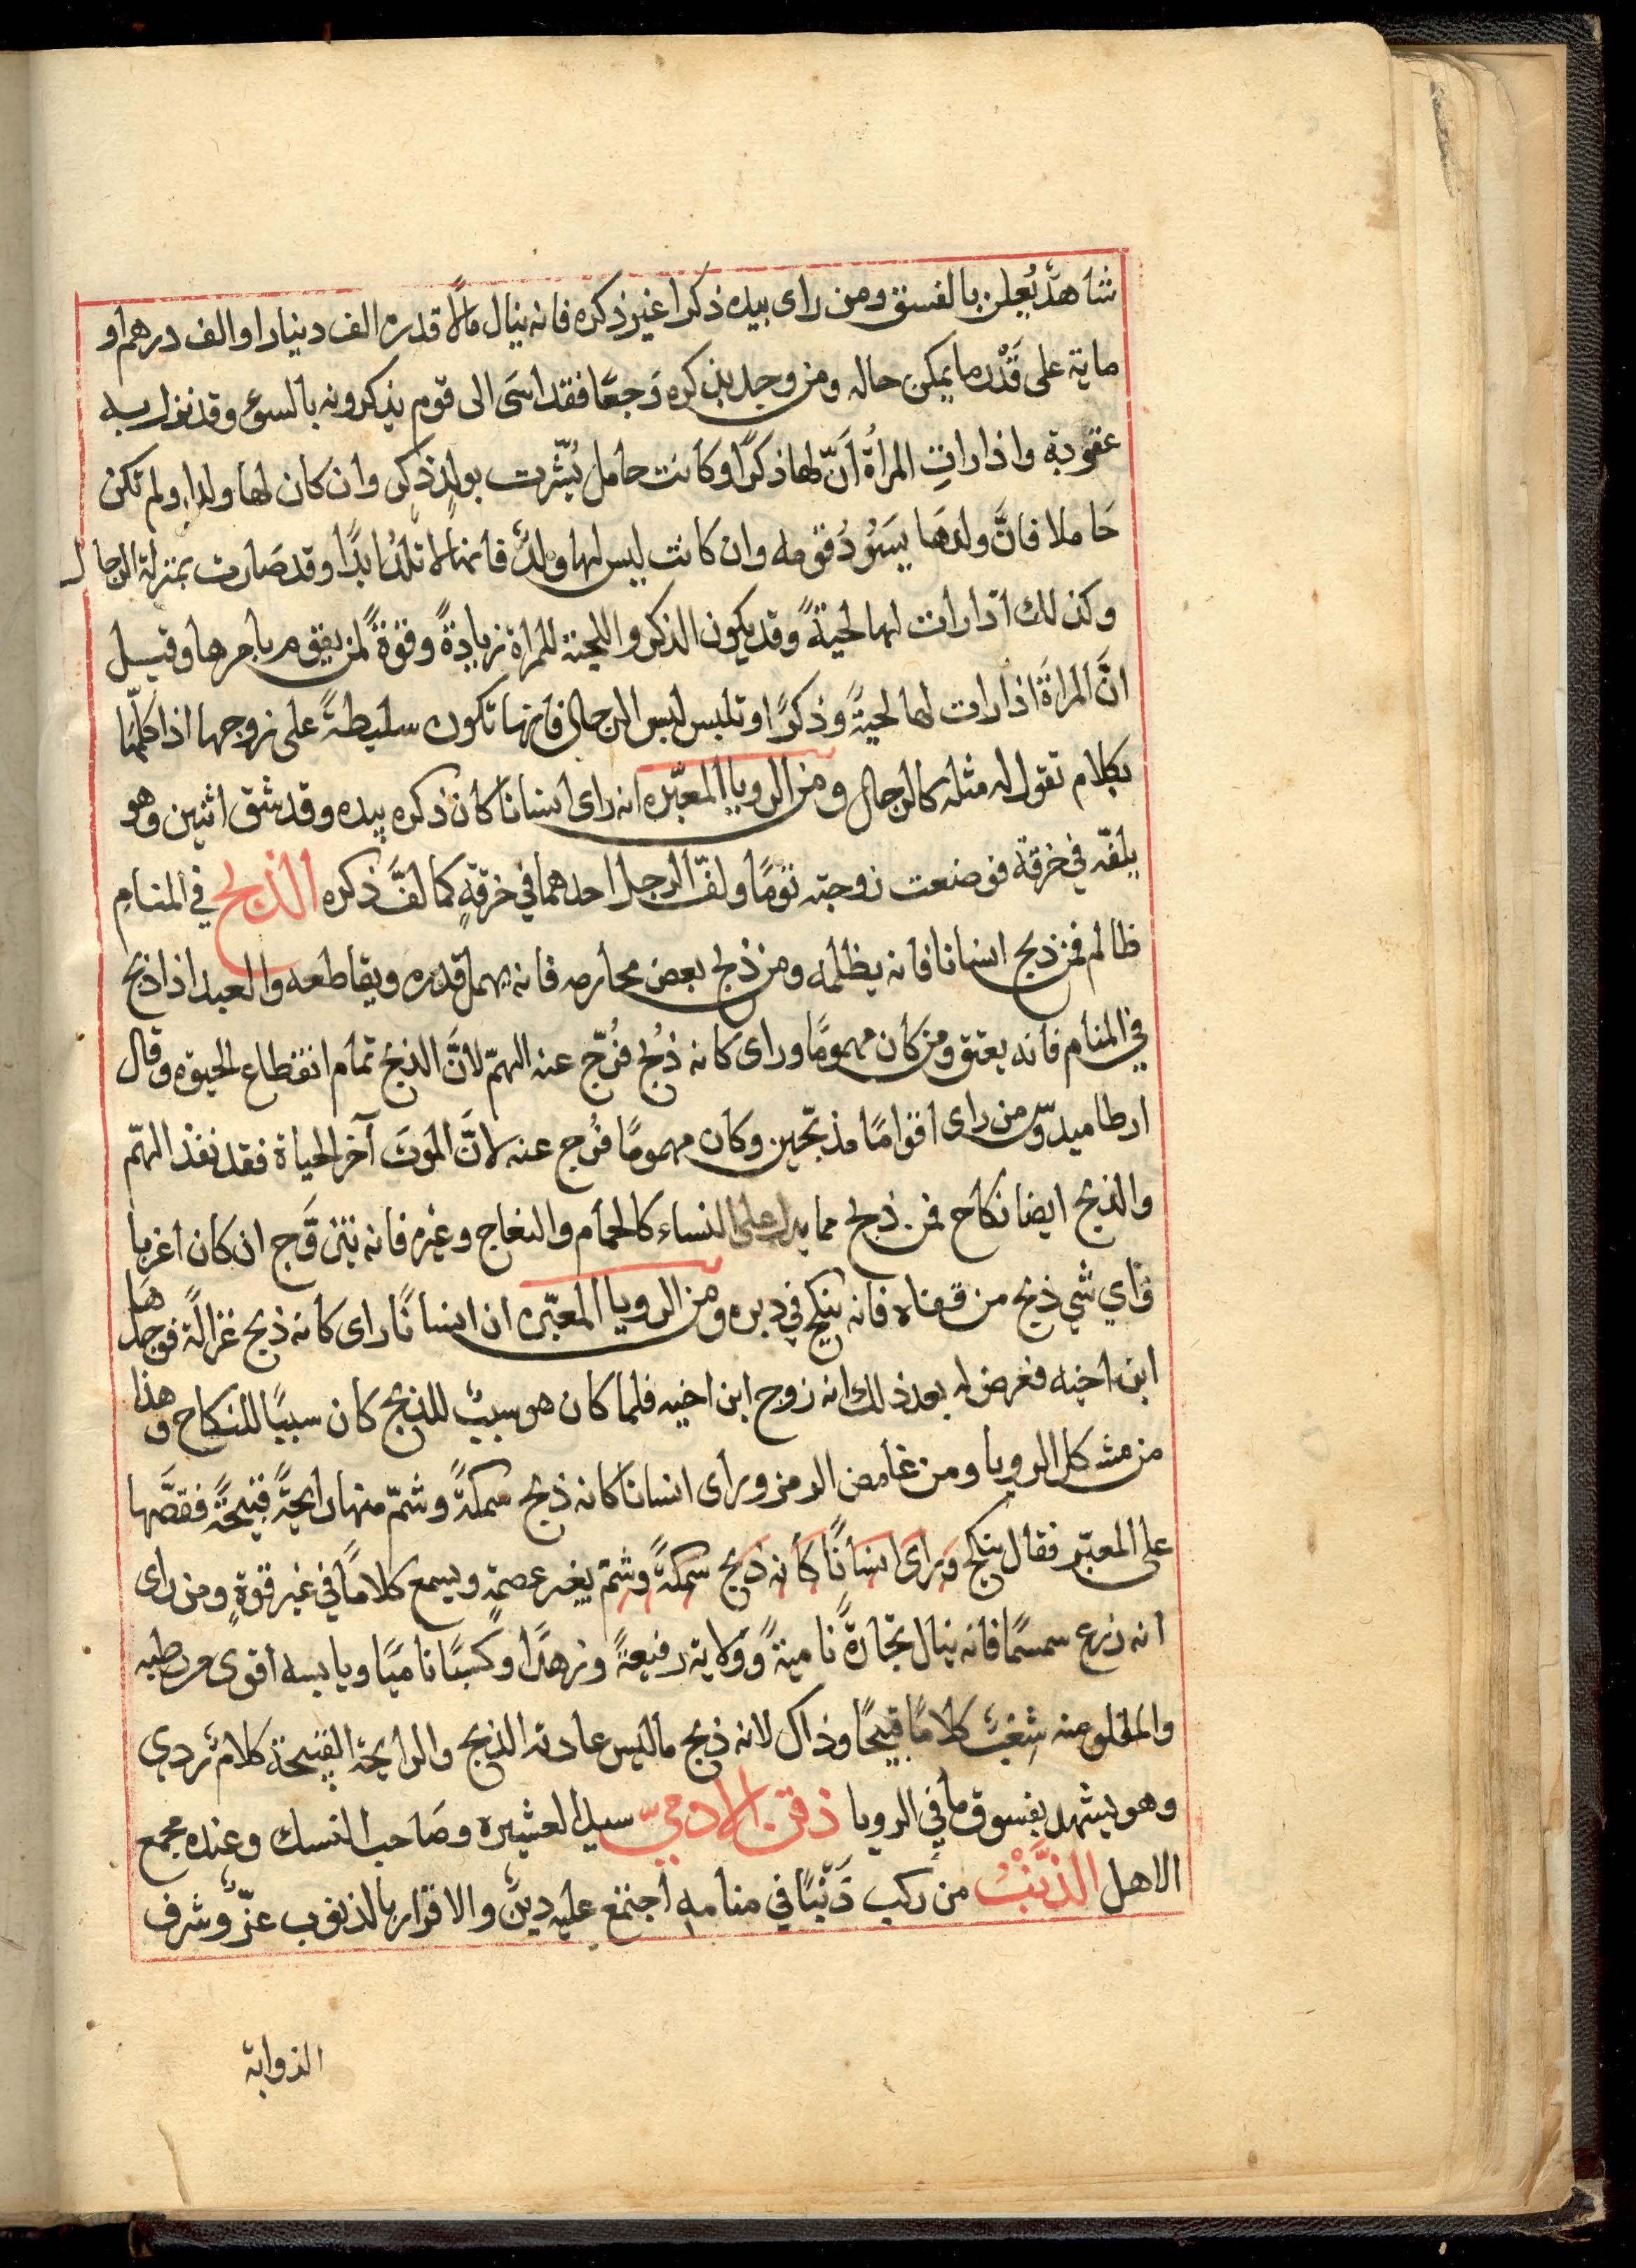 شاهدٌ يُعلن بالفسق ومن راى بيده ذكرا غير ذكره فانه ينال مالاً قدره الف دينار او الف درهم او
ماية على قَدْر ما يمكن حاله ومن وجد بذكره وَجعًا فقد اسَى الى قوم يذكرونه بالسوء وقد نزل به
عقوبة واذا راتِ المراةُ اَنَّ لها ذكرًا وكانت حامل بُشّرت بولدٍ ذكرٍ وان كان لها ولدا ولم تكن
حَاملا فانَّ ولدهَا يسَوُدُ قومه وان كانت ليس لها ولدٌ فانها لا تلدُ ابدًا وقد صَارت بمنزلة الرجال
وكذلك اذا رات لها لحيَةً وقد يكون الذكر واللحية للمراة زيادةً وقوةً لمن يقوم بامرها وقيل
انَّ المراةَ اذا رات لها لحيَةً وذكرًا او تلبس لبس الرجال فانها تكون سليطةً على زوجها اذا كلّمها
بكلام تقول له مثله كالرجال ومن الرويا المعبّره انه راى انسانا كان ذكره بيده وقد شق اثنين وهو
يلفّه في خرقة فوضعت زوجته توٌمًا ولفّ الرجل احدهما في خرقةٍ كما لفَّ ذكره الذبح في المنام
ظالم فمن ذبح انسانا فانه يظلمه ومن ذبح بعض محارمه فانه يهمل قدره ويقاطعه والعبد اذا ذبح
في المنام فانه يعتق ومن كان مهمومًا وراى كانه ذُبح فُرّج عنه الهمّ لانَّ الذبح تمام انقطاع الحيوه وقال
ارطاميدوّس من راى اقوامًا مذبّحين وكان مهمومًا فُرّج عنه لانَّ الموتَ آخر الحياة فقد نفذ الهمّ
والذبح ايضا نكاح فمن ذبح مما يدل على النساء كالحمام والنعاج وغيره فانه يتزوَّج ان كان اعزبا
فايّ شي ذبح من قفاه فانه ينكح في دبره ومن الرويا المعبّره ان انسانًا راى كانه ذبح غزالةً فوجدهَا
ابن اخيه فعرض له بعد ذلك انه زوج ابن اخيه فلما كان هو سببٌ للذبح كان سببًا للنكاح وهذا
من مشكل الرويا ومن غامض الرمز وراى انسانا كانه ذبح سمكةً وشمّ منها رايحةً قبيحةً فقصَّها
على المعبّر فقال ينكح وَراى انسانًا كانه ذبح سمكةً وشتم بغير عصمة ويسمع كلامًا في غير قوةٍ ومن راى
انه زرع سمسمًا فانه ينال تجارةً ناميةً وَولاية رفيعةً وزهدًا وكسبًا ناميًا ويابسه اقوى من رطبه
والمقلو منه شغبٌ كلامًا قبيحًا وذاك لانه ذبح ما ليس عادته الذبح والرايحة القبيحة كلامٌ ردي
وهو يشهد بفسوق ما في الرويا ذقن الادميّ سيد العشيره وصَاحب النسك وعنده مجمع
الاهل الذَّنْبُ من ركب ذَنْبًا في منامه اجتمع عليه دينٌ والاقرار بالذنوب عزٌّ وشرف
الذوابة